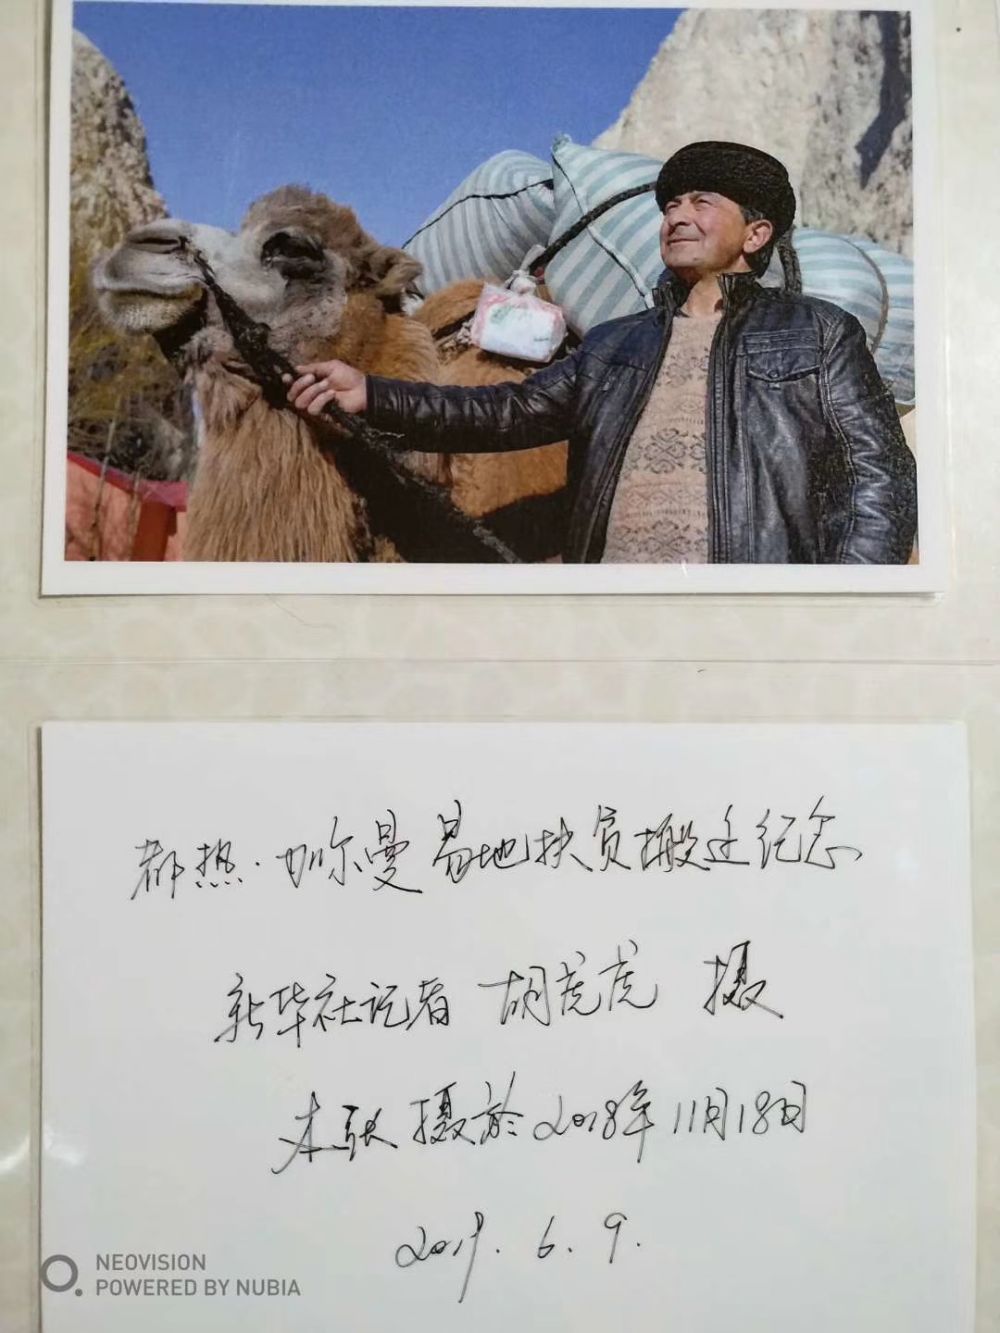 都热·加尔曼易地扶贫搬迁纪念
新华社记者 胡虎虎 摄
本张摄於2018年11月18日
2019.6.9.
NEOVISION
POWERED BY NUBIA